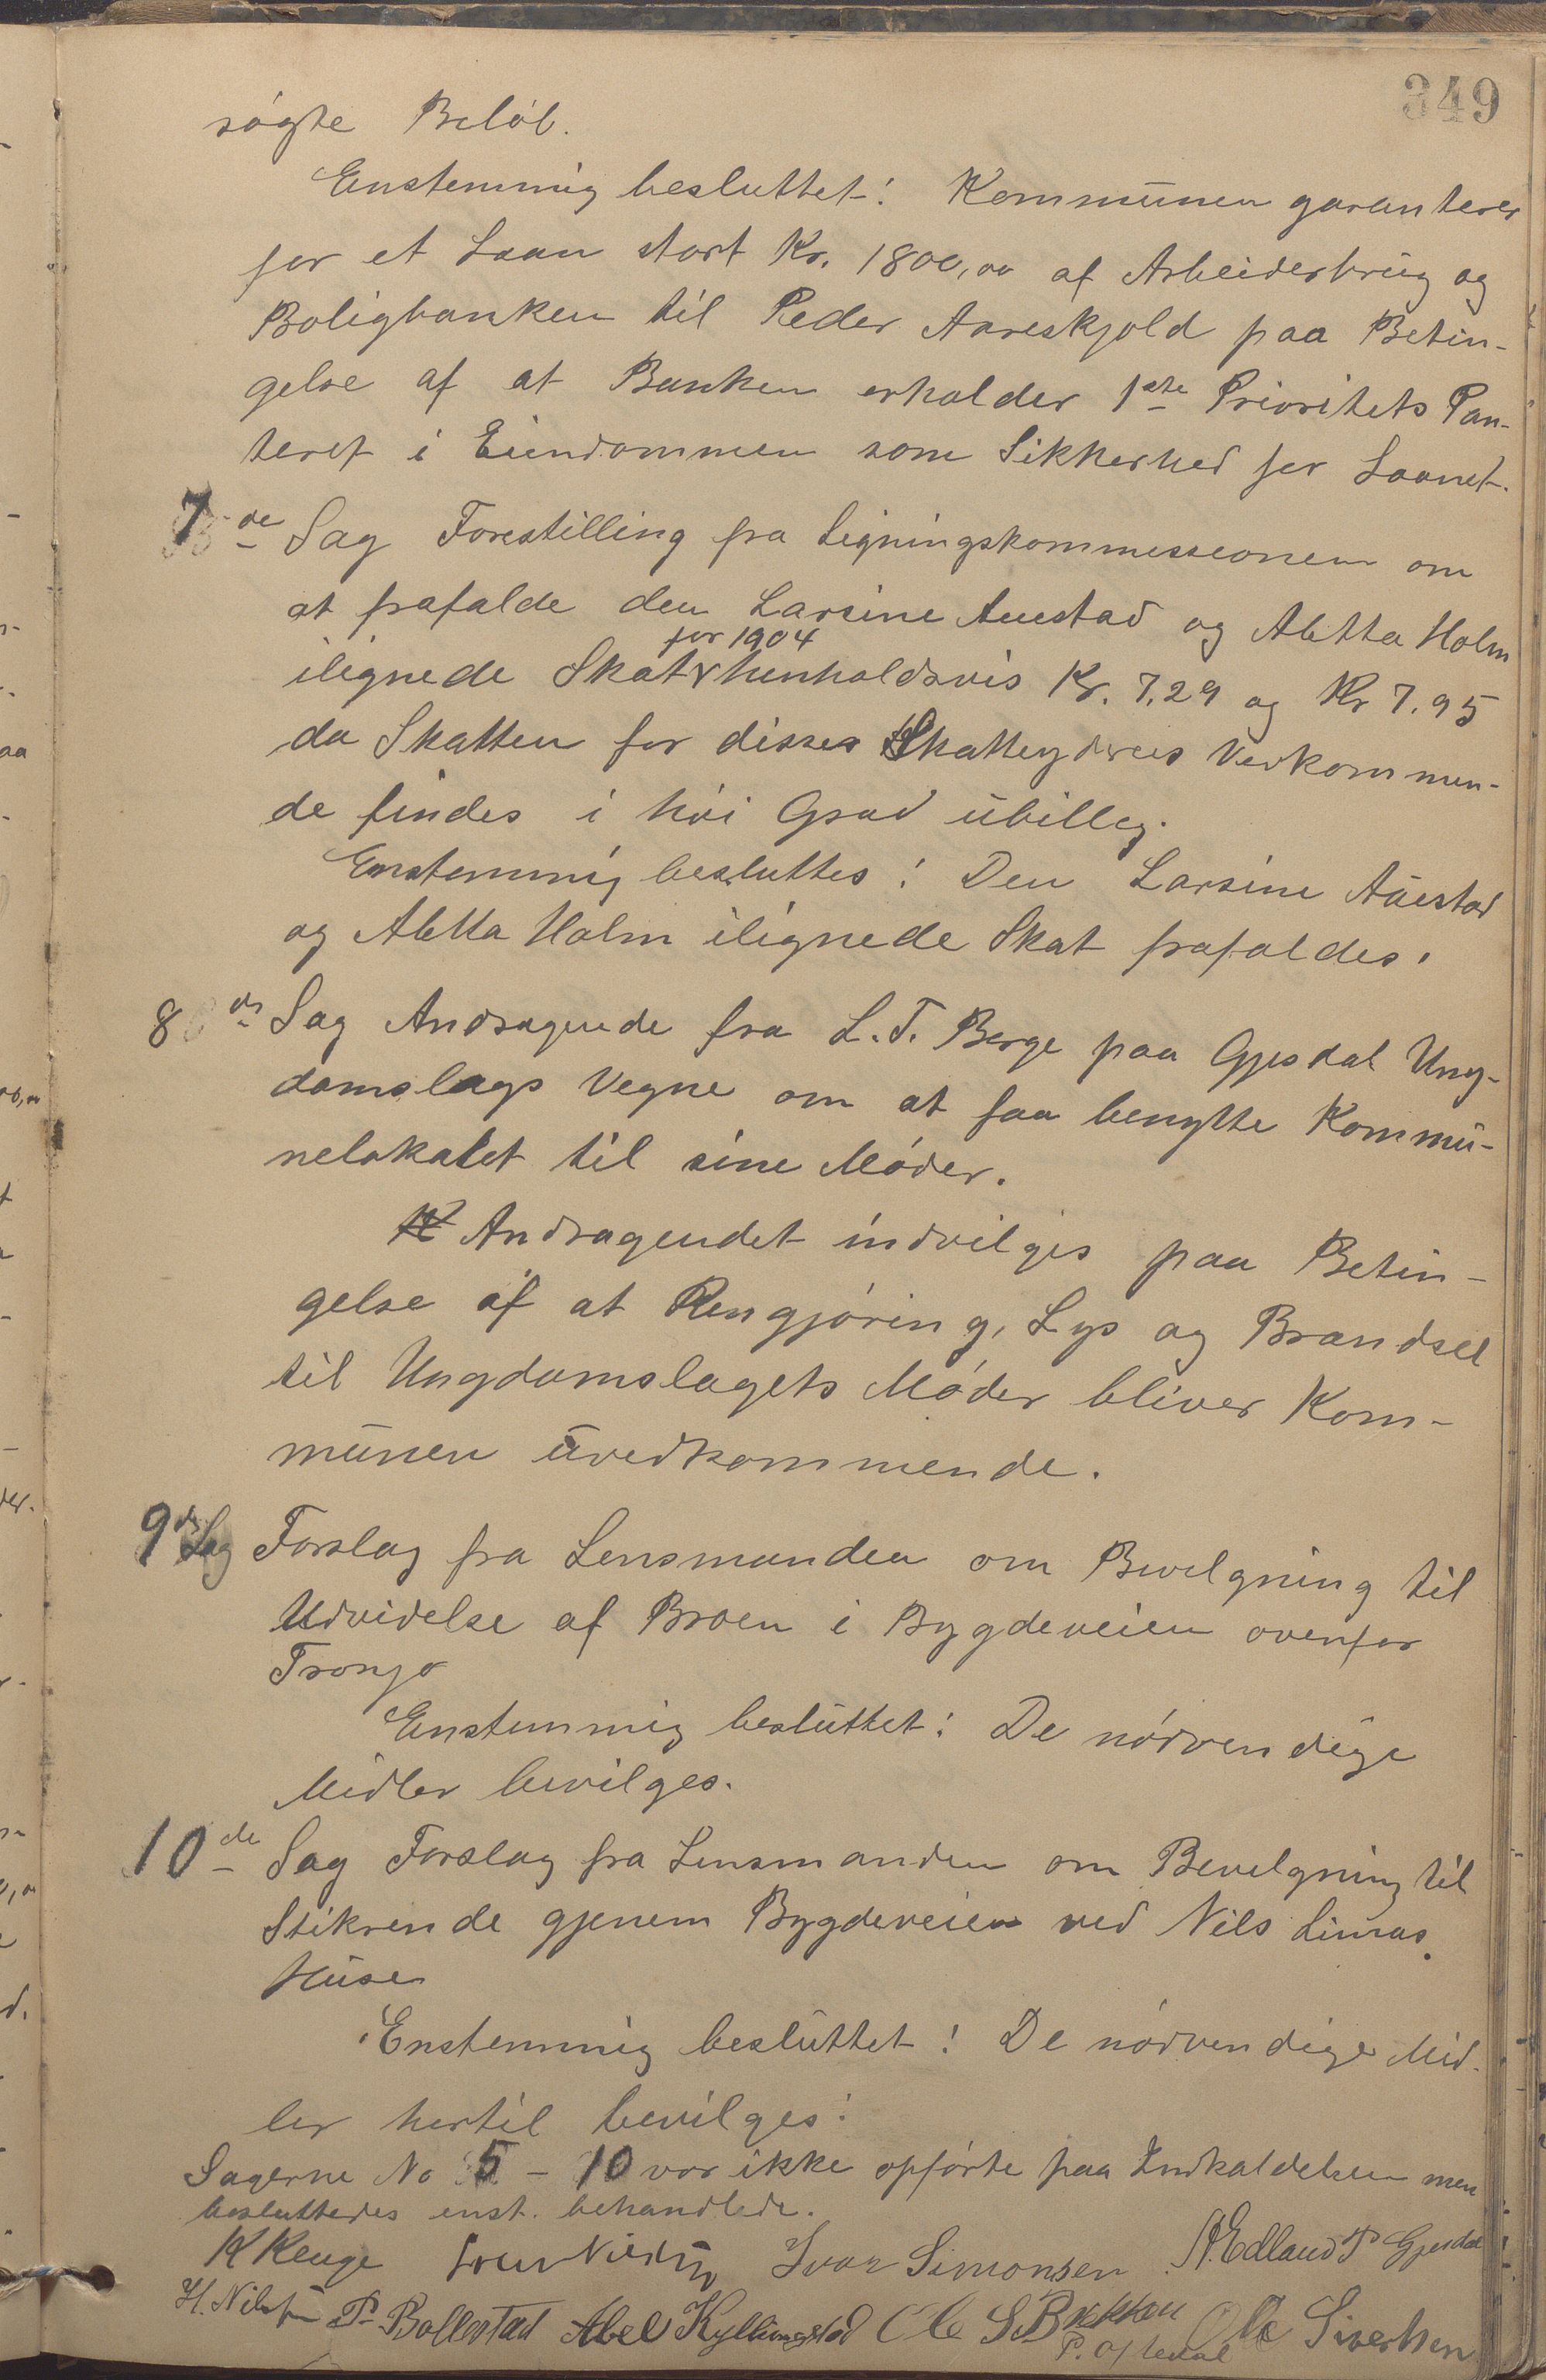 349
søgte Beløb.
Enstemmig besluttet: Kommunen garanterer
for et Laan stort Kr. 1800,00 af Arbeiderbrug og
Boligbanken til Peder Aareskjold paa Betin-
gelse af at Banken erholder 1ste Prioritets Pan-
teret i Eiendommen som Sikkerhed for Laanet.
7de Sag Forestilling fra Ligningskommissionen om
at frafalde den Larsine Auestad og Abtta Holm
for 1904
ilignede Skat henholdsvis Kr. 7,29 og Kr 7,95
da Skatten for disses Skatteyderes Vedkommen-
de findes i høi Grad ubillig.
Enstemmig besluttes: Den Larsine Auestad
og Abtta Holm ilignede Skat frafaldes.
8de Sag Andragende fra L. T. Berge paa Gjesdal Ung-
domslags Vegne om at faa benytte Kommu-
nelokalet til sine Møder.
Andragendet indvilges paa Betin-
gelse af at Rengjøring, Lys og Brændsel
til Ungdomslagets Møder bliver Kom-
munen uvedkommende.
9de Sag Forslag fra Lensmanden om Bevilgning til
Udvidelse af Broen i Bygdeveien ovenfor
Tronjo
Enstemmig besluttet: De nødvendige
Midler bevilges.
10de Sag Forslag fra Lensmanden om Bevilgning til
Stikrende gjenem Bygdeveien ved Nils Limas
Huse
Enstemmig besluttet: De nødvendige Mid-
ler hertil bevilges.
Sagerne No 5 - 10 var ikke opførte paa Indkaldelsen men
besluttedes enst. behandlede.
K Kluge Ivar Simonsen A. Edland P Gjesdal
H. Nilsen P. Bollestad Abel Kyllingstad Ole S Bekken Ole Sivertsen
P. Oftedal